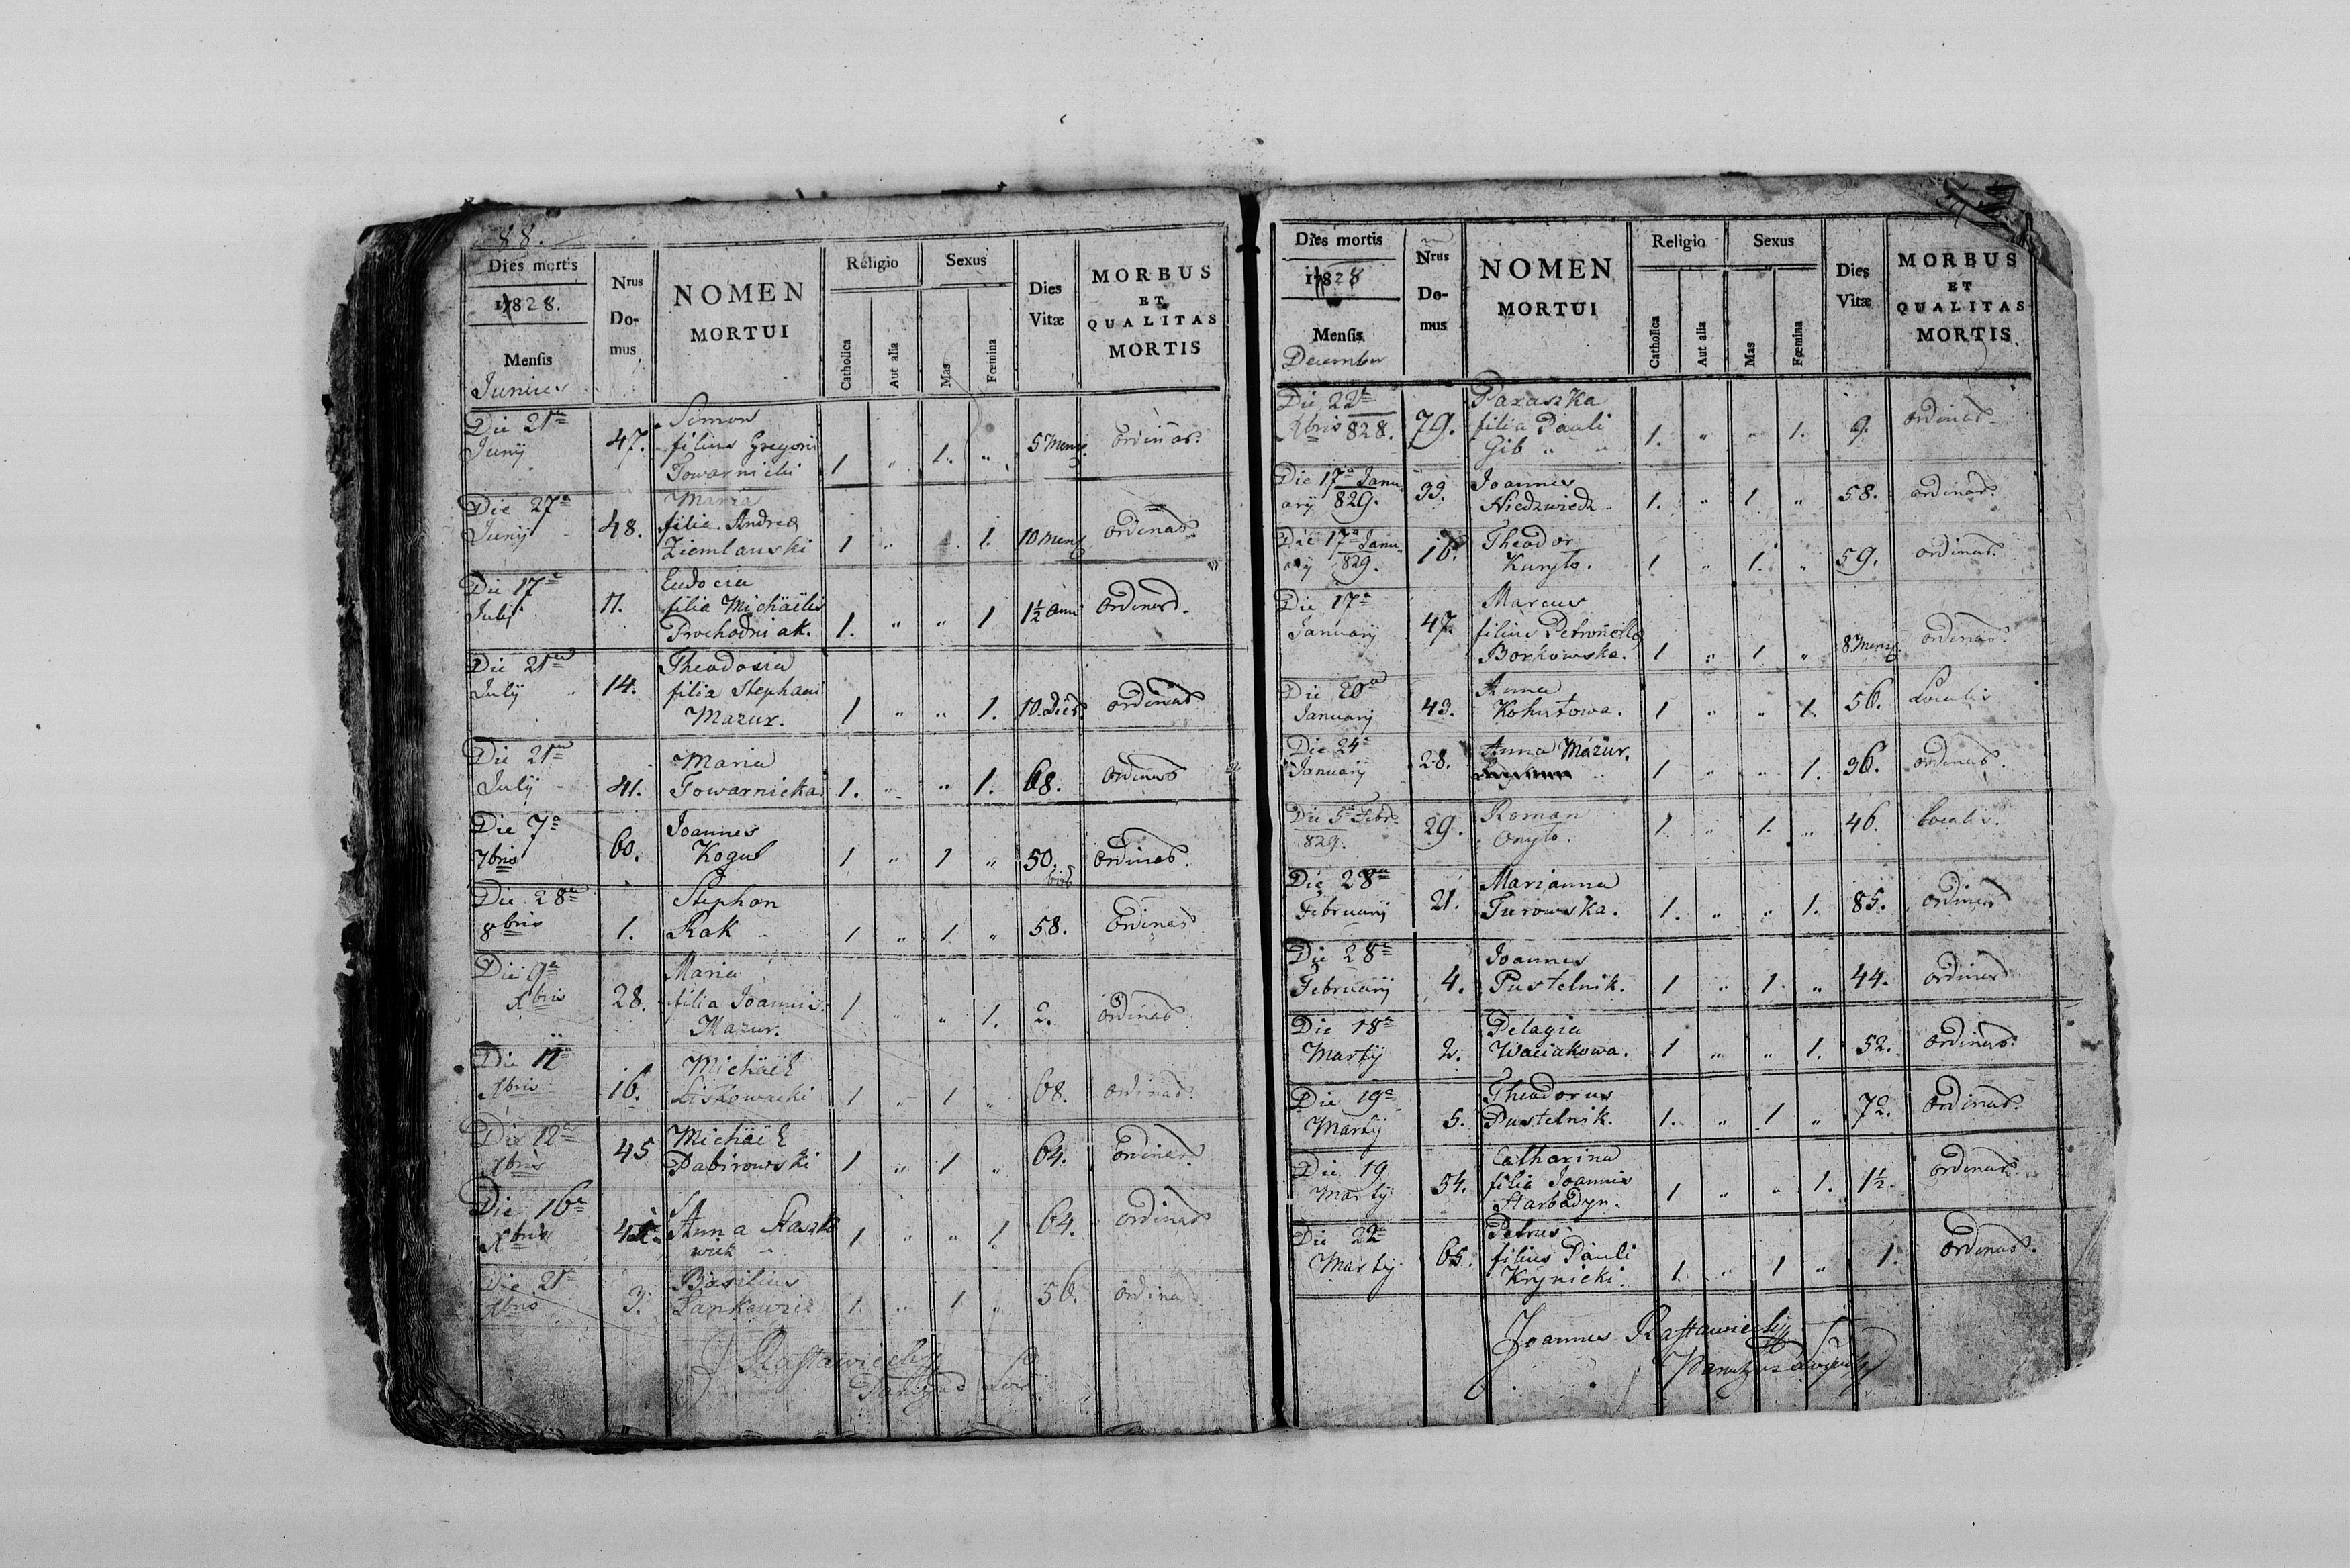 88.
Dies mortis
Nrus Do-mus
NOMEN MORTUI
Religio
Sexus
Dies Vitæ
MORBUS ET QUALITAS MORTIS
1828.
Mensis
Catholica
Aut alia
Mas
Fœmina
Junius
Die 21a Junij 47. Simon filius Gregorii Towarnicki 1 " 1. " 5 Mens. ordinar.
Die 27a Junij 48. Maria filia Andreæ Ziemlanski 1 " 1. 10 mens ordinar.
Die 17a Julij 11. Eudocia filia Michäelis Prochodniak. 1. " " 1 1½ ann ordinar.
Die 21a July 14. Theodosia filia Stephani Mazur. 1 " " 1. 10 dies ordinar
Die 21a July 41. Maria Towarnicka 1. " " 1. 68. ordinar
Die 7a 7bris 60. Joannes Kogut 1 " 1 " 50. ordinar.
Die 28a 8bris 1. Stephan Kak 1 " 1. " 58. ordinar
Die 9a Xbris 28. Maria filia Joannis Mazur. 1 " " 1. 2. ordinar
Die 11a Xbris 16. Michäel Liskowacki 1 " 1 " 68. ordinar.
Die 12a Xbris 45 Michäel Dabirowski 1 " 1 " 64. ordinar.
Die 16a Xbris Anna Staszkowicz 1 " " 1 64. ordinar
Die 21a Xbris 3. Basilius Pankowicz 1. " 1 " 56. ordinar
J Rastawiecky
Dies mortis
Nrus Do-mus
NOMEN MORTUI
Religio
Sexus
Dies Vitæ
MORBUS ET QUALITAS MORTIS
1828
Mensis
Catholica
Aut alia
Mas
Fœmina
December
Die 22a Xbris 828. 79. Paraszka filia Pauli Gib " 1. " " 1. 9. ordinar.
Die 17a Januarij 829. 39. Joannes Niedzwiedz 1. " 1 " 58. ordinar.
Die 17a Januarij 829. 16. Theodor Kuryło. 1 " 1. " 59. ordinar.
Die 17a Januarij 47. Marcus filius Petronellæ Borkowska. 1 " 1 " 8 mens ordinar.
Die 20a Januarij 43. Anna Kohutowa. 1 " " 1. 56. Localis
Die 24a Januarij 28. Anna Mazur. 1 " " 1. 36. ordinar.
Die 5a Febr. 829. 29. Roman Onyło. 1. " 1. " 46. Localis.
Die 28a Februarij 21. Marianna Turowska. 1. " " 1. 85. ordinar
Die 28a Februarij 4. Joannes Pustelnik. 1 " 1. " 44. ordinar
Die 18a Martij 2. Pelagia Waciakowa. 1 " " 1. 52. ordinar.
Die 19a Martij 5. Theodorus Pustelnik. 1. " 1 " 72. ordinar.
Die 19 Martij 54. Catharina filia Joannis Harbadyn. 1 " " 1. 1½ ordinar.
Die 22a Martij 65. Petrus filius Pauli Krynicki. 1. " 1 " 1. ordinar.
Joannes Rastawiecky